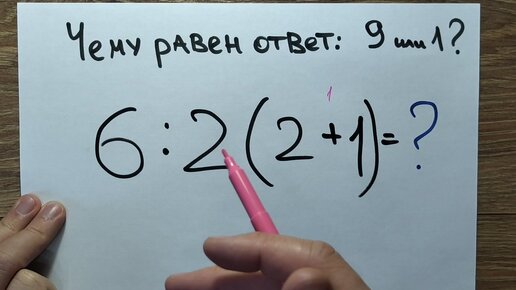 Чему равен ответ: 9 или 1?
1
6:2(2+1)=?